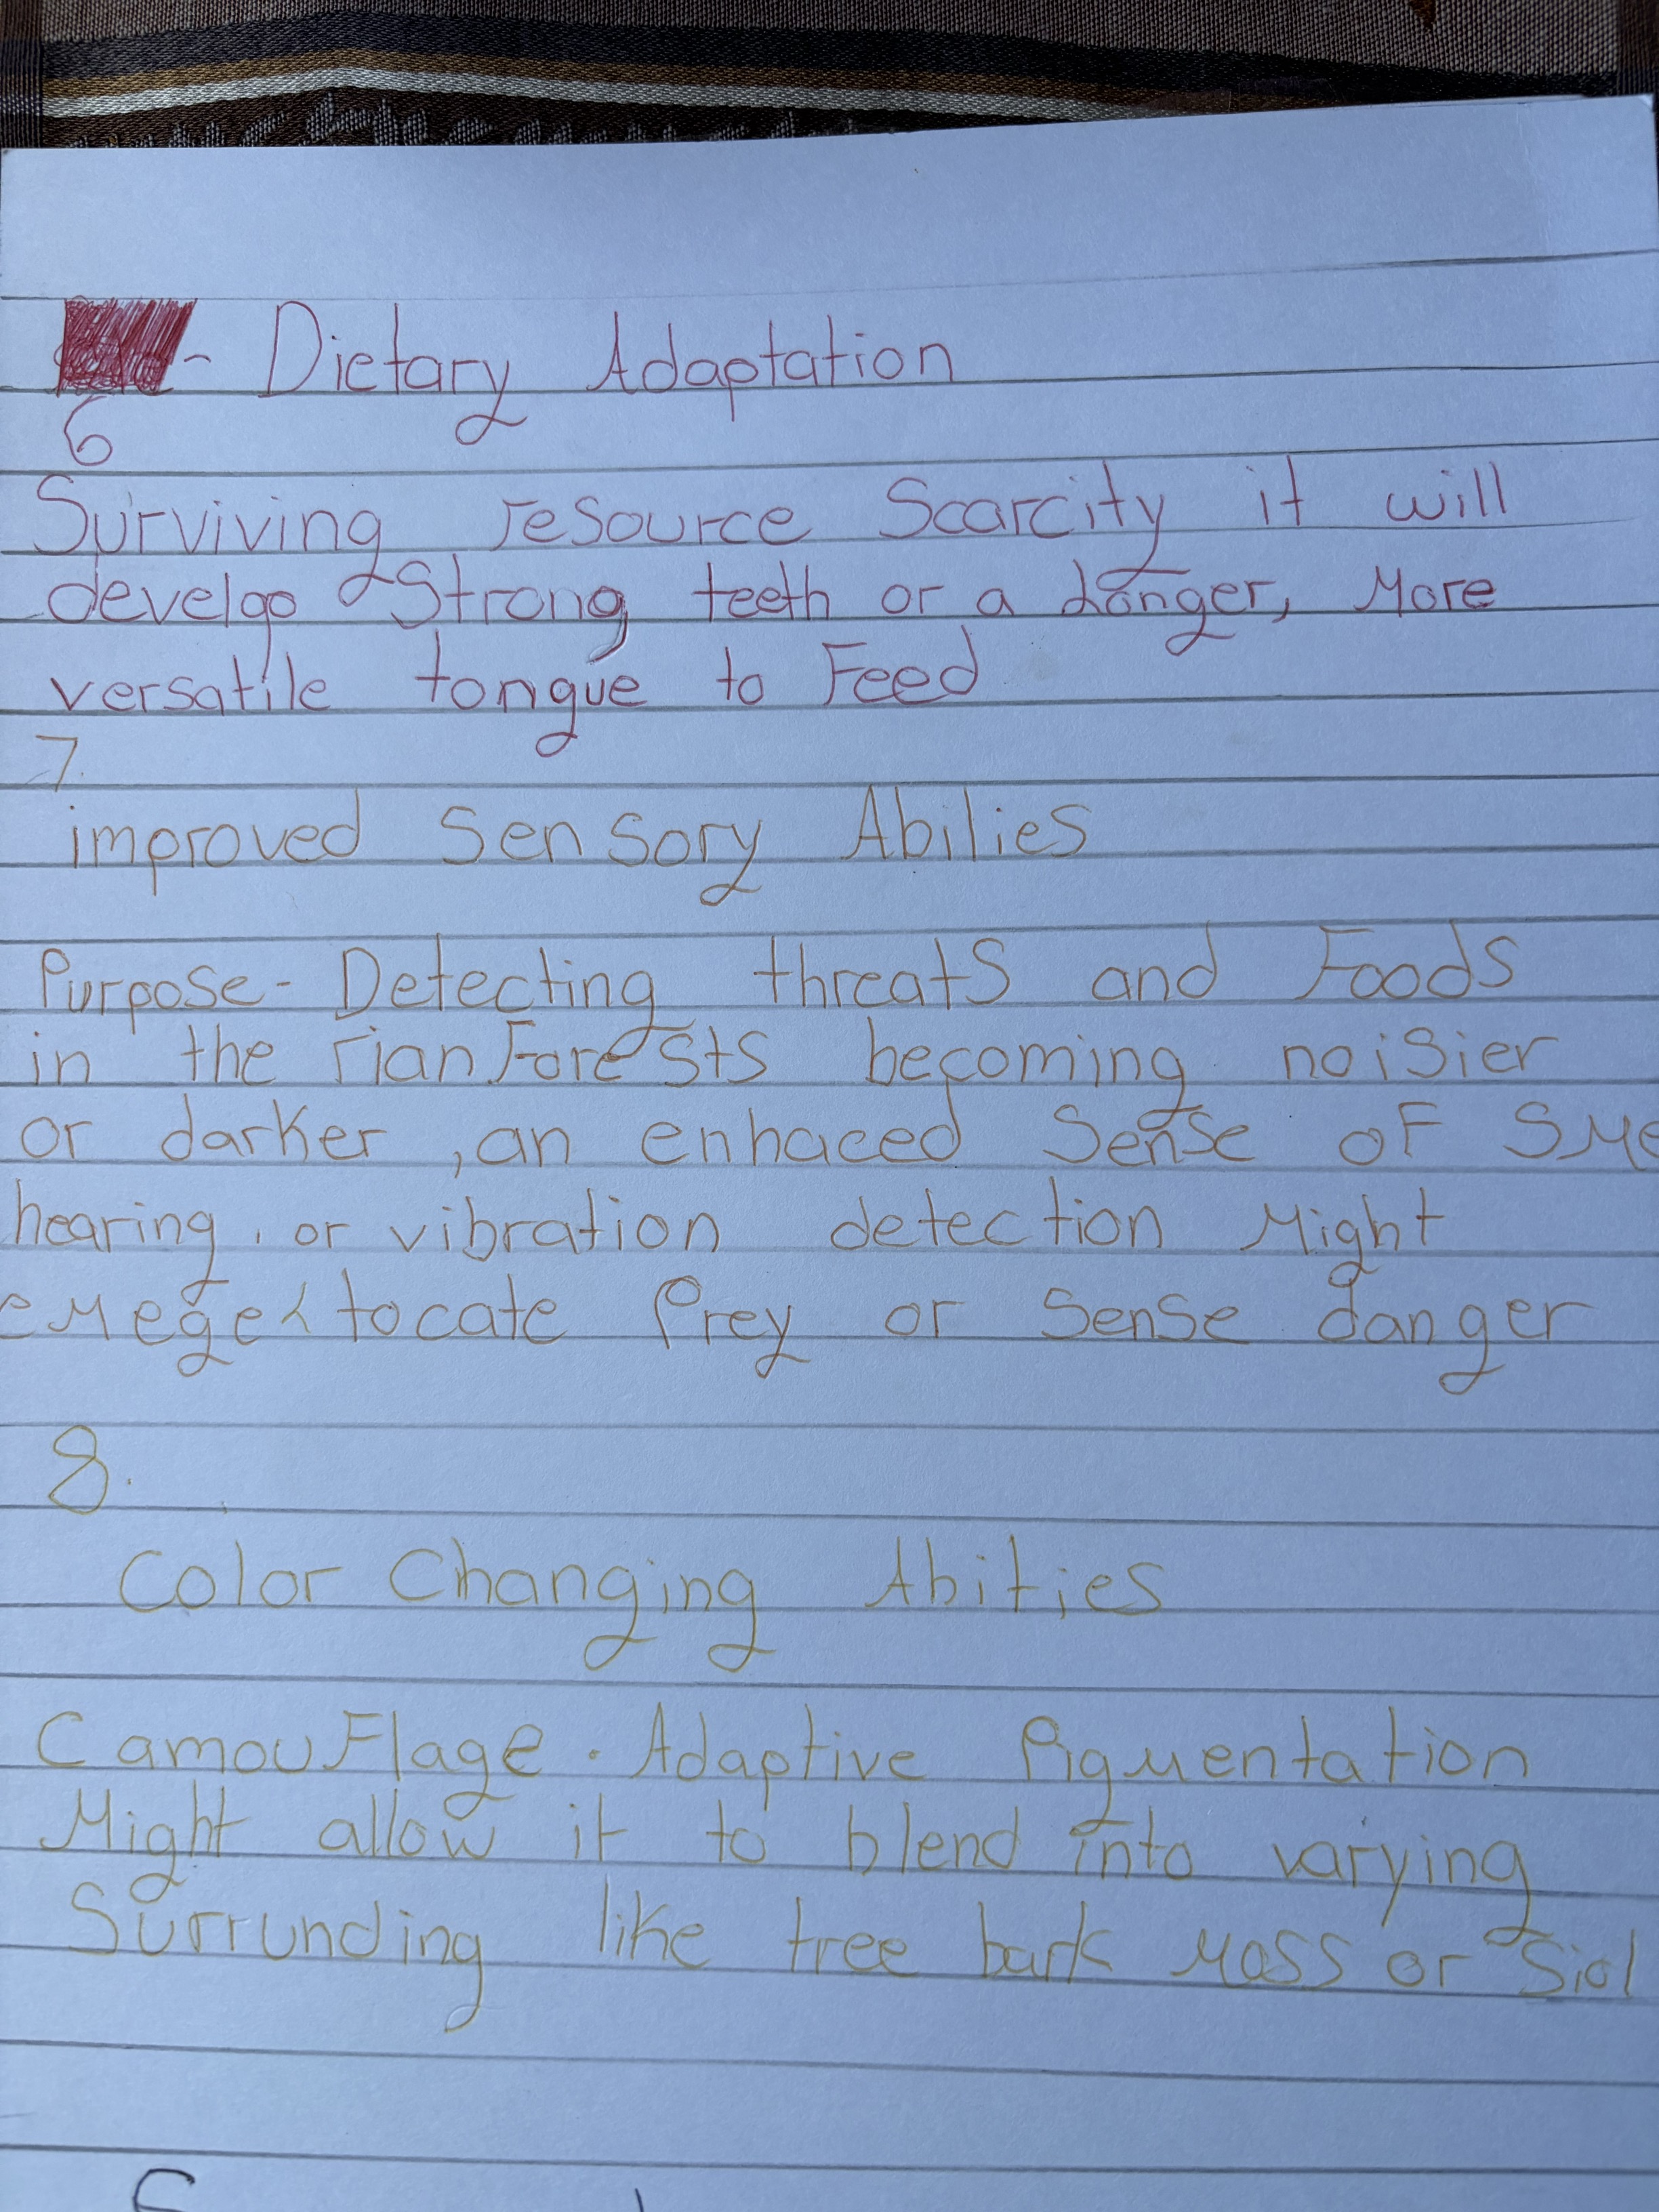 - Dietary Adaptation
6
Surviving resource Scarcity it will
develop Strong teeth or a Longer, More
versatile tongue to Feed
7.
improved Sensory Abilies
Purpose - Detecting threats and Foods
in the rianForests becoming noisier
or darker, an enhaced Sense oF SMe
hearing, or vibration detection Might
to cate Prey or Sense danger
8.
Color Changing Abities
CamouFlage. Adaptive Pigmentation
Might allow it to blend into varying
Surrunding like tree bark Moss or Siol